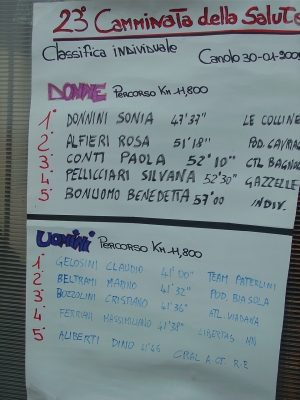 23° Camminata della Salute
Classifica individuale Canolo 30-01-2005
DONNE Percorso Km 11,800
1° DONNINI SONIA 47'37" LE COLLINE
2° ALFIERI ROSA 51'18" POD. CAVRIAG
3° CONTI PAOLA 52'10" CTL BAGNO
4° PELLICCIARI SILVANA 52'30" GAZZELLE
5° BONUOMO BENEDETTA 57'00 INDIV.
UOMINI Percorso Km 11,800
1° GELOSINI CLAUDIO 41'00" TEAM PATERLINI
2° BELTRAMI MARINO 41'32" POD. BIASOLA
3° BOZZOLINI CRISTIANO 41'36" ATL. VIADANA
4° FERRARI MASSIMILIANO 41'38" LIBERTAS MN
5° ALIBERTI DINO 41'45 CRAL A.CT. R.E